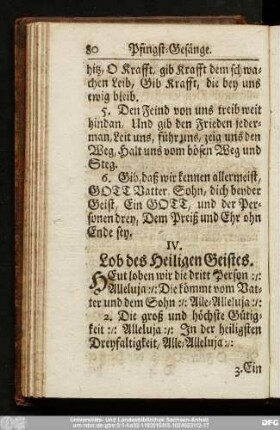 80 Pfingst-Gesänge.
hitz, O Krafft, gib Krafft dem schwa-
chen Leib, Gib Krafft, die bey uns
ewig bleib.
5. Den Feind von uns treib weit
hindan, Und gib den Frieden jeder-
man, Leit uns, führ uns, zeig uns den
Weg, Halt uns vom bösen Weg und
Steg.
6. Gib, daß wir kennen allermeist,
GOTT Vatter, Sohn, dich beyder
Geist, Ein GOTT, und der Per-
sonen drey, Dem Preiß und Ehr ohn
Ende sey.
IV.
Lob des Heiligen Geistes.
HEut loben wir die dritt Person :/:
Alleluja :/: Die kömt vom Vat-
ter und dem Sohn :/: Alle/Alleluja :/:
2. Die groß und höchste Gütig-
keit :/: Alleluja :/: In der heiligsten
Dreyfaltigkeit, Alle/Alleluja :/:
3. Ein
Universitäts- und Landesbibliothek Sachsen-Anhalt